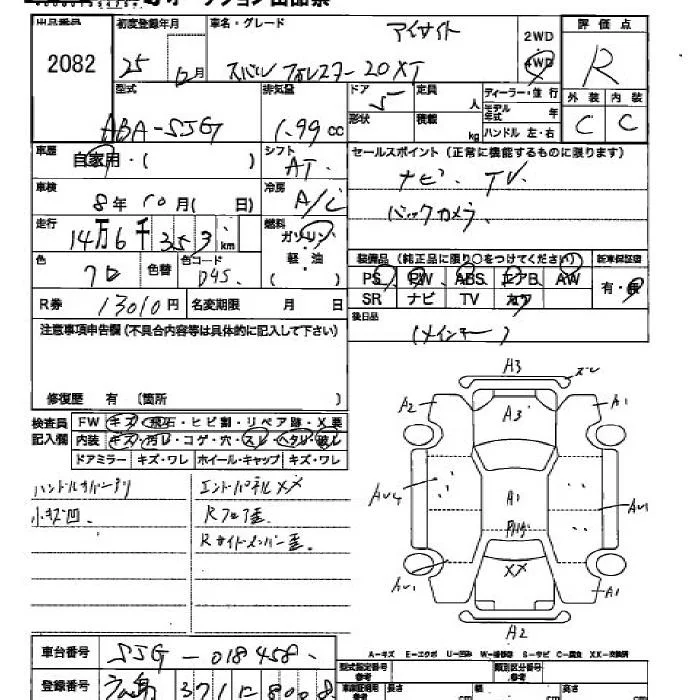 出品番号 初度登録年月 車名・グレード アイサイト 2WD 評価点
2082 25年 12月 スバル フォレスター 2.0XT 4WD R
型式 排気量 ドア 5 定員 人 ディーラー・並行 外装 内装
ABA-SJG 1.99cc 形状 積載 kg モデル年式 年 ハンドル 左・右 C C
車歴 シフト セールスポイント(正常に機能するものに限ります)
自家用・( ) AT ナビ. TV.
車検 冷房 バックカメラ.
8年10月( 日) A/C
走行 燃料
14万6千353km ガソリン
色 色替 色コード 軽・油 装備品(純正品に限り○をつけてください) 新車保証書
クロ D4S. ( ) PS PW ABS エアB AW 有・無
R券 13010円 名変期限 月 日 SR ナビ TV カワ
注意事項申告欄(不具合内容等は具体的に記入して下さい) 後日品
(メインキー)
修復歴 有 〔箇所 〕
検査員 FW キズ・飛石・ヒビ割・リペア跡・X要
記入欄 内装 キズ・汚レ・コゲ・穴・スレ・ヘタリ・破レ
ドアミラー キズ・ワレ ホイール・キャップ キズ・ワレ
エンドパネルXX
小キズ凹. Rフロア歪
Rサイドメンバー歪.
A3 スレ
A2 A3 A1
AU4 A1 AU1
XX
AU1 A1
A2
A-キズ E-エクボ U-凹み W-補修跡 S-サビ C-腐食 XX-交換済
車台番号 SJG-018458. 型式指定番号 類別区分番号
登録番号 371 8008 長さ cm 幅 cm 高さ cm